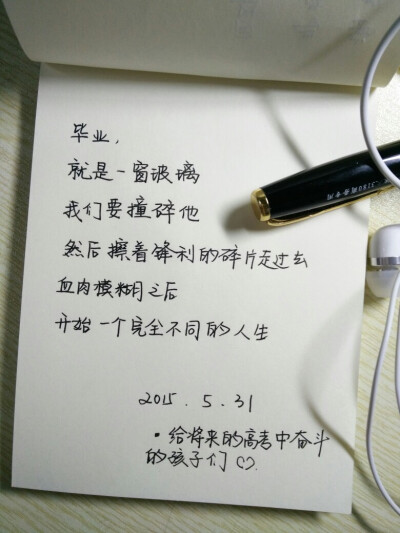 毕业，
就是一窗玻璃
我们要撞碎他
然后擦着锋利的碎片走过去
血肉模糊之后
开始一个完全不同的人生
2015.5.31
·给将来的高考中奋斗
的孩子们